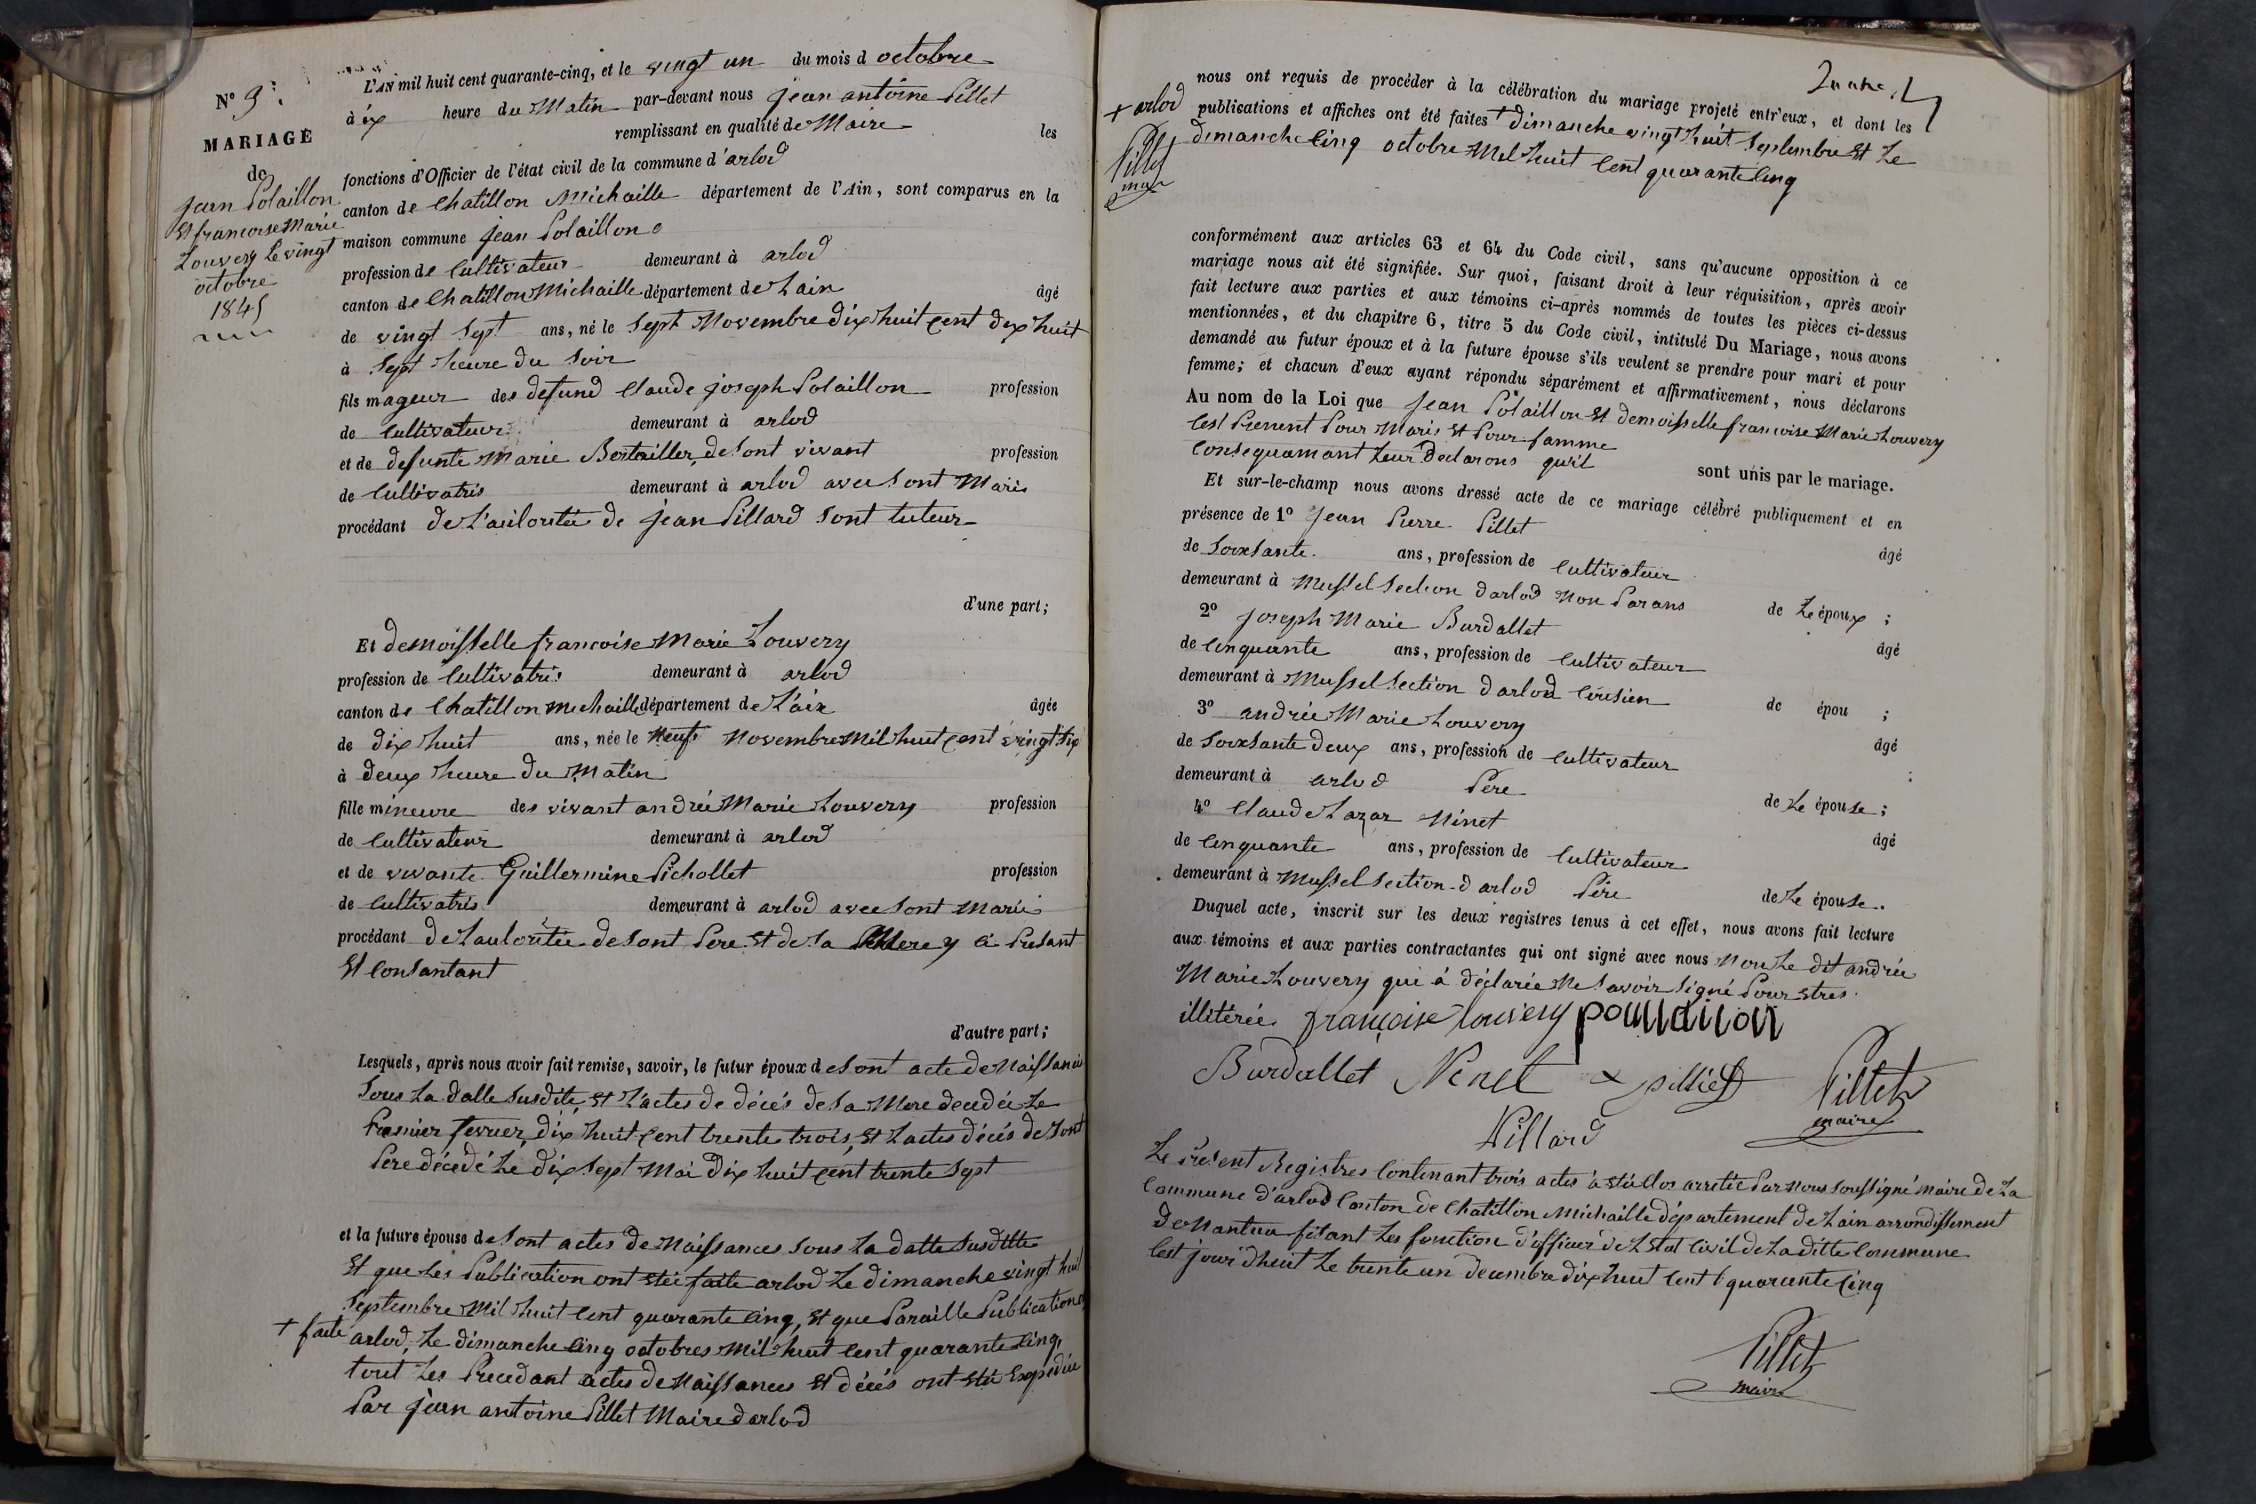 N° 3
MARIAGE
de
jean Polaillon
Et francoise Marie
Louvery Le vingt
octobre
1845
L'AN mil huit cent quarante-cinq, et le vingt un du mois d octobre
à ix heure du Matin par-devant nous jean antoine Pillet
remplissant en qualité de Maire les
fonctions d'Officier de l'état civil de la commune d'arlod
canton de Chatillon Michaille département de l'Ain, sont comparus en la
maison commune jean Polaillon
profession de Cultivateur demeurant à arlod
canton de Chatillon Michaille département de Lain âgé
de vingt Sept ans, né le Sept Novembre dix huit Cent dix huit
à Sept heure du Soir
fils mageur des defund Claude joseph Polaillon profession
de Cultivateur demeurant à arlod
et de defunte Marie Bertailler, de Sont vivant profession
de Cultivatris demeurant à arlod avec Sont Maris
procédant de L'autoritée de jean Pillard Sont tuteur
d'une part;
Et demoisselle francoise Marie Louvery
profession de Cultivatris demeurant à arlod
canton de Chatillon michaille département de Lain âgée
de dix huit ans, née le Neuf Novembre Mil huit Cent vingt Six
à deux heure du Matin
fille mineure des vivant andrée Marie Louvery profession
de Cultivateur demeurant à arlod
et de vivante Guillermine Pichollet profession
de Cultivatris demeurant à arlod avec Sont Maris
procédant de Lautoritée de Sont Pere Et de Sa Mere y à Présant
Et Consantant
d'autre part;
Lesquels, après nous avoir fait remise, savoir, le futur époux de Sont acte de Naissance
Sous La datte Susdite, Et L'actes de décés de Sa Mere decedée Le
Premier fevrier, dix huit Cent trente trois, Et Lactes décés de Sont
Pere décedé Le dix Sept Mai dix huit Cent trente Sept
et la future épouse de Sont actes de Naissances Sous La datte Susditte
Et que Les Publication ont étée faite arlod Le dimanche vingt huit
Septembre Mil huit Cent quarante Cinq, Et que Paraille Publications
+ faite arlod, Le dimanche Cinq octobres Mil huit Cent quarante Cinq,
tout Les Precedant actes de Naissances Et décés ont été Expédiée
Par jean antoine Pillet Maire darlod
nous ont requis de procéder à la célébration du mariage projeté entr'eux, et dont les
+ arlod
Pillet
maire
publications et affiches ont été faites + dimanche vingt huit Septembre Et Le
dimanche Cinq octobre Mil huit Cent quarante Cinq
conformément aux articles 63 et 64 du Code civil, sans qu'aucune opposition à ce
mariage nous ait été signifiée. Sur quoi, faisant droit à leur réquisition, après avoir
fait lecture aux parties et aux témoins ci-après nommés de toutes les pièces ci-dessus
mentionnées, et du chapitre 6, titre 5 du Code civil, intitulé Du Mariage, nous avons
demandé au futur époux et à la future épouse s'ils veulent se prendre pour mari et pour
femme; et chacun d'eux ayant répondu séparément et affirmativement, nous déclarons
Au nom de la Loi que jean Polaillon Et demoisselle francoise Marie Louvery
Ces! Prenent Pour Maris Et Pour famme
Consequamant Leur Déclarons qu'il sont unis par le mariage.
Et sur-le-champ nous avons dressé acte de ce mariage célébré publiquement et en
présence de 1° jean Pierre Pillet
de Soixsante ans, profession de Cultivateur âgé
demeurant à Mussel Section darlod Non Parans de Le époux ;
2° joseph Marie Burdallet
de Cinquante ans, profession de Cultivateur âgé
demeurant à Mussel Section darlod Cousien de épou ;
3° andrée Marie Louvery
de Soixsante deux ans, profession de Cultivateur âgé
demeurant à arlod Pere de Le épouse ;
4° Claude Lazar Ninet
de Cinquante ans, profession de Cultivateur âgé
demeurant à Mussel Section d arlod Père de Le épouse.
Duquel acte, inscrit sur les deux registres tenus à cet effet, nous avons fait lecture
aux témoins et aux parties contractantes qui ont signé avec nous Non Le dit andrée
Marie Louvery qui à déclarée Ne Savoir Signé Pour Etres
illiterée françoise louvery
Burdallet Ninet pilliet Pillet
maire
Pillard
Le présent Registres Contenant trois actes à été Clos arretée Par Nous Soussigné Maire de La
Commune d'arlod Canton de Chatillon Michaille département de Lain arrondissement
de Nantua fesant Les fonction d'officier de L'état Civil de La ditte Commune
Cest jourd'heui Le trente un decembre dix huit Cent quarante Cinq
Pillet
maire